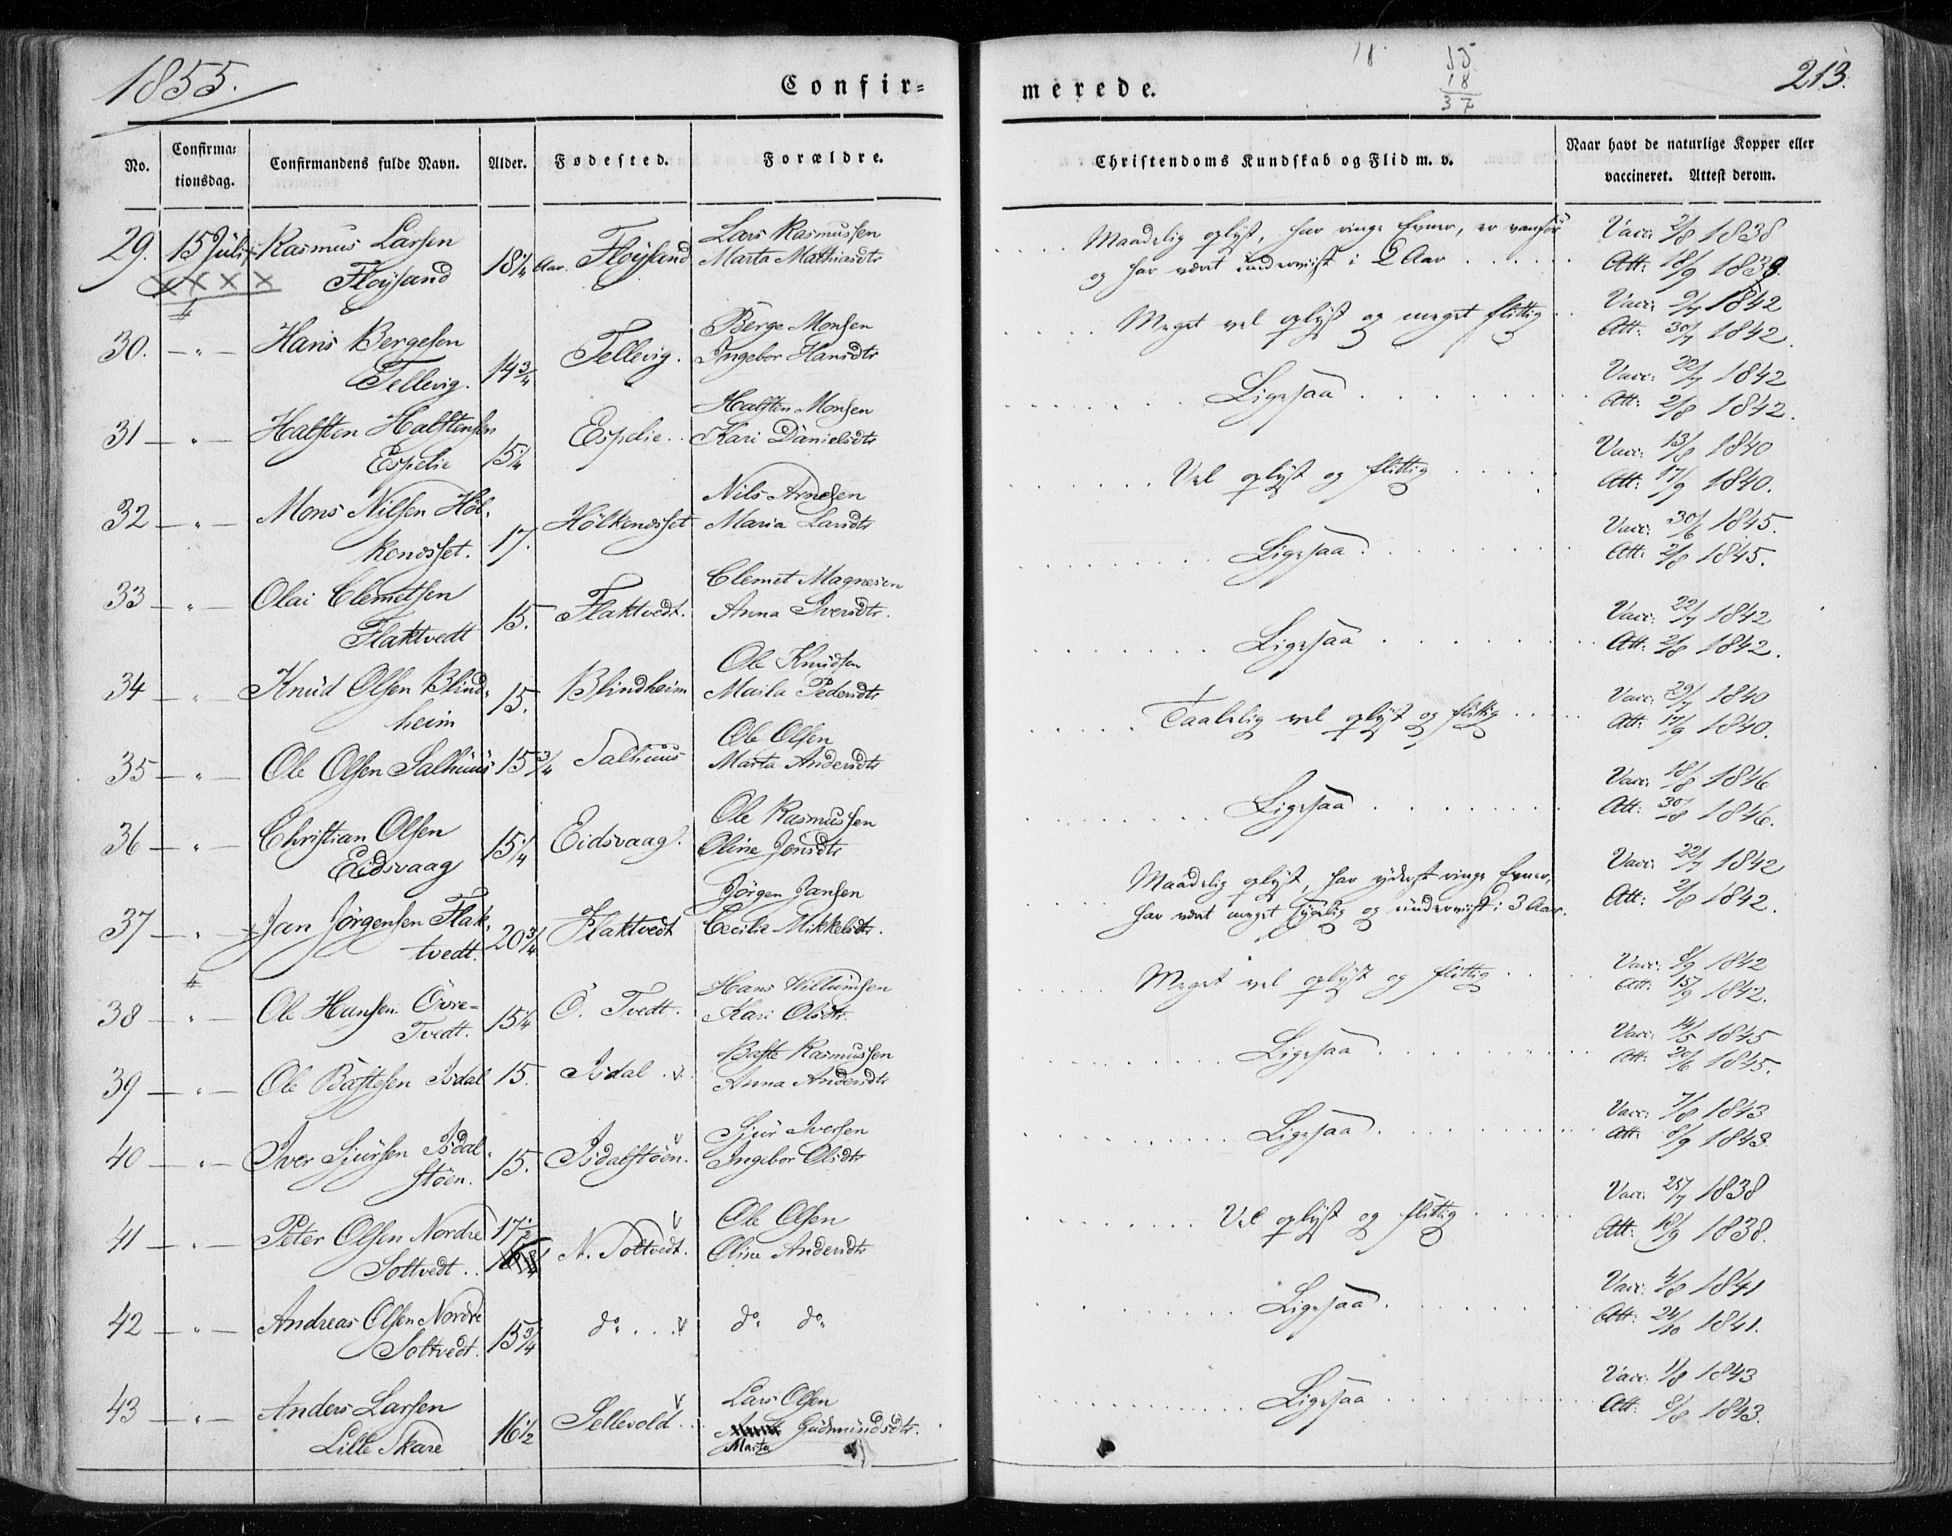 1855.
Confir=
merede.
18.
15
18
37
213.
No.
Confirma=
tionsdag.
Confirmandens fulde Navn.
Alder.
Fødested.
Forældre.
Christendoms Kundskab og Flid m. v.
Naar havt de naturlige Kopper eller
vaccineret. Attest derom.
29. 15 Juli Rasmus Larsen 18 1/4 Aar. Fløysand Lars Rasmussen
xxxx Fløysand Marta Mathiasdtr
Maadelig oplyst, har ringe Evner, er vanfør
og har været underviist i 2 Aar
Vacc: 2/8 1838
Att: 18/9 1838
30. — „ — Hans Bergesen 14 3/4 Tellevig. Berge Monsen
Tellevig. Ingebor Hansdtr
Meget vel oplyst og meget flittig
Vacc: 9/7 1842
Att: 30/7 1842.
31 — „ — Halsten Halstensen 15 1/4 Espelie Halsten Monsen
Espelie Kari Danielsdtr
Ligesaa
Vacc: 22/7 1842
Att: 2/8 1842.
32 — „ — Mons Nilsen Høl- 17. Hølkenesset Nils Arnesen
kenesset. Maria Larsdtr
Vel oplyst og flittig
Vacc: 13/8 1840
Att: 17/9 1840.
33 — „ — Olai Clemetsen 15. Flaktvedt. Clemet Magnesen
Flaktvedt Anna Iversdtr.
Ligesaa
Vacc: 30/6 1845.
Att: 2/8 1845.
34 — „ — Knud Olsen Blind- 15. Blindheim Ole Knudsen
heim Marta Pedersdtr
Ligesaa
Vacc: 22/7 1842
Att: 2/8 1842.
35 — „ — Ole Olsen Salhuus 15 3/4 Salhuus Ole Olsen
Marta Andersdtr
Taalelig vel oplyst og flittig
Vacc: 29/7 1840
Att: 17/9 1840.
36 — „ — Christian Olsen 15 1/4 Eidsvaag. Ole Rasmussen
Eidsvaag Oline Jonsdtr
Ligesaa
Vacc: 18/8 1846
Att: 30/8 1846.
37 — „ — Jan Jörgensen Flak- 20 3/4 Flaktvedt Jörgen Jansen
tvedt. Cecilie Mikkelsdtr.
Maadelig oplyst, har yderst ringe Evner,
har været meget sygelig og underviist i 3 Aar.
Vacc: 22/7 1842
Att: 2/8 1842.
38 — „ — Ole Hansen Övre- 15 1/4 Ö. Tvedt. Hans Villumsen
Tvedt. Kari Olsdtr.
Meget vel oplyst og flittig
Vacc: 8/9 1842
Att: 15/9 1842.
39 — „ — Ole Bastesen Isdal 15. Isdal v. Baste Rasmussen
Anna Andersdtr
Ligesaa
Vacc: 14/5 1845
Att: 20/6 1845.
40 — „ — Iver Sjursen Isdal- 15. Isdalstöen. v Sjur Iversen
stöen. Ingebor Olsdtr
Ligesaa
Vacc: 7/8 1843
Att: 8/9 1843.
41 — „ — Peter Olsen Nordre 17 1/2 N. Soltvedt. v Ole Olsen
Soltvedt. Oline Andersdtr
Vel oplyst og flittig
Vacc: 25/7 1838
Att: 18/9 1838.
42 — „ — Andreas Olsen Nordre 15 3/4 do v do do
Soltvedt.
Ligesaa
Vacc: 4/8 1841
Att: 24/10 1841.
43 — „ — Anders Larsen 16 1/2 Sellevold v Lars Olsen
Lille Skare Gudmundsdtr.
Marta
Ligesaa
Vacc: 1/8 1843
Att: 8/8 1843.